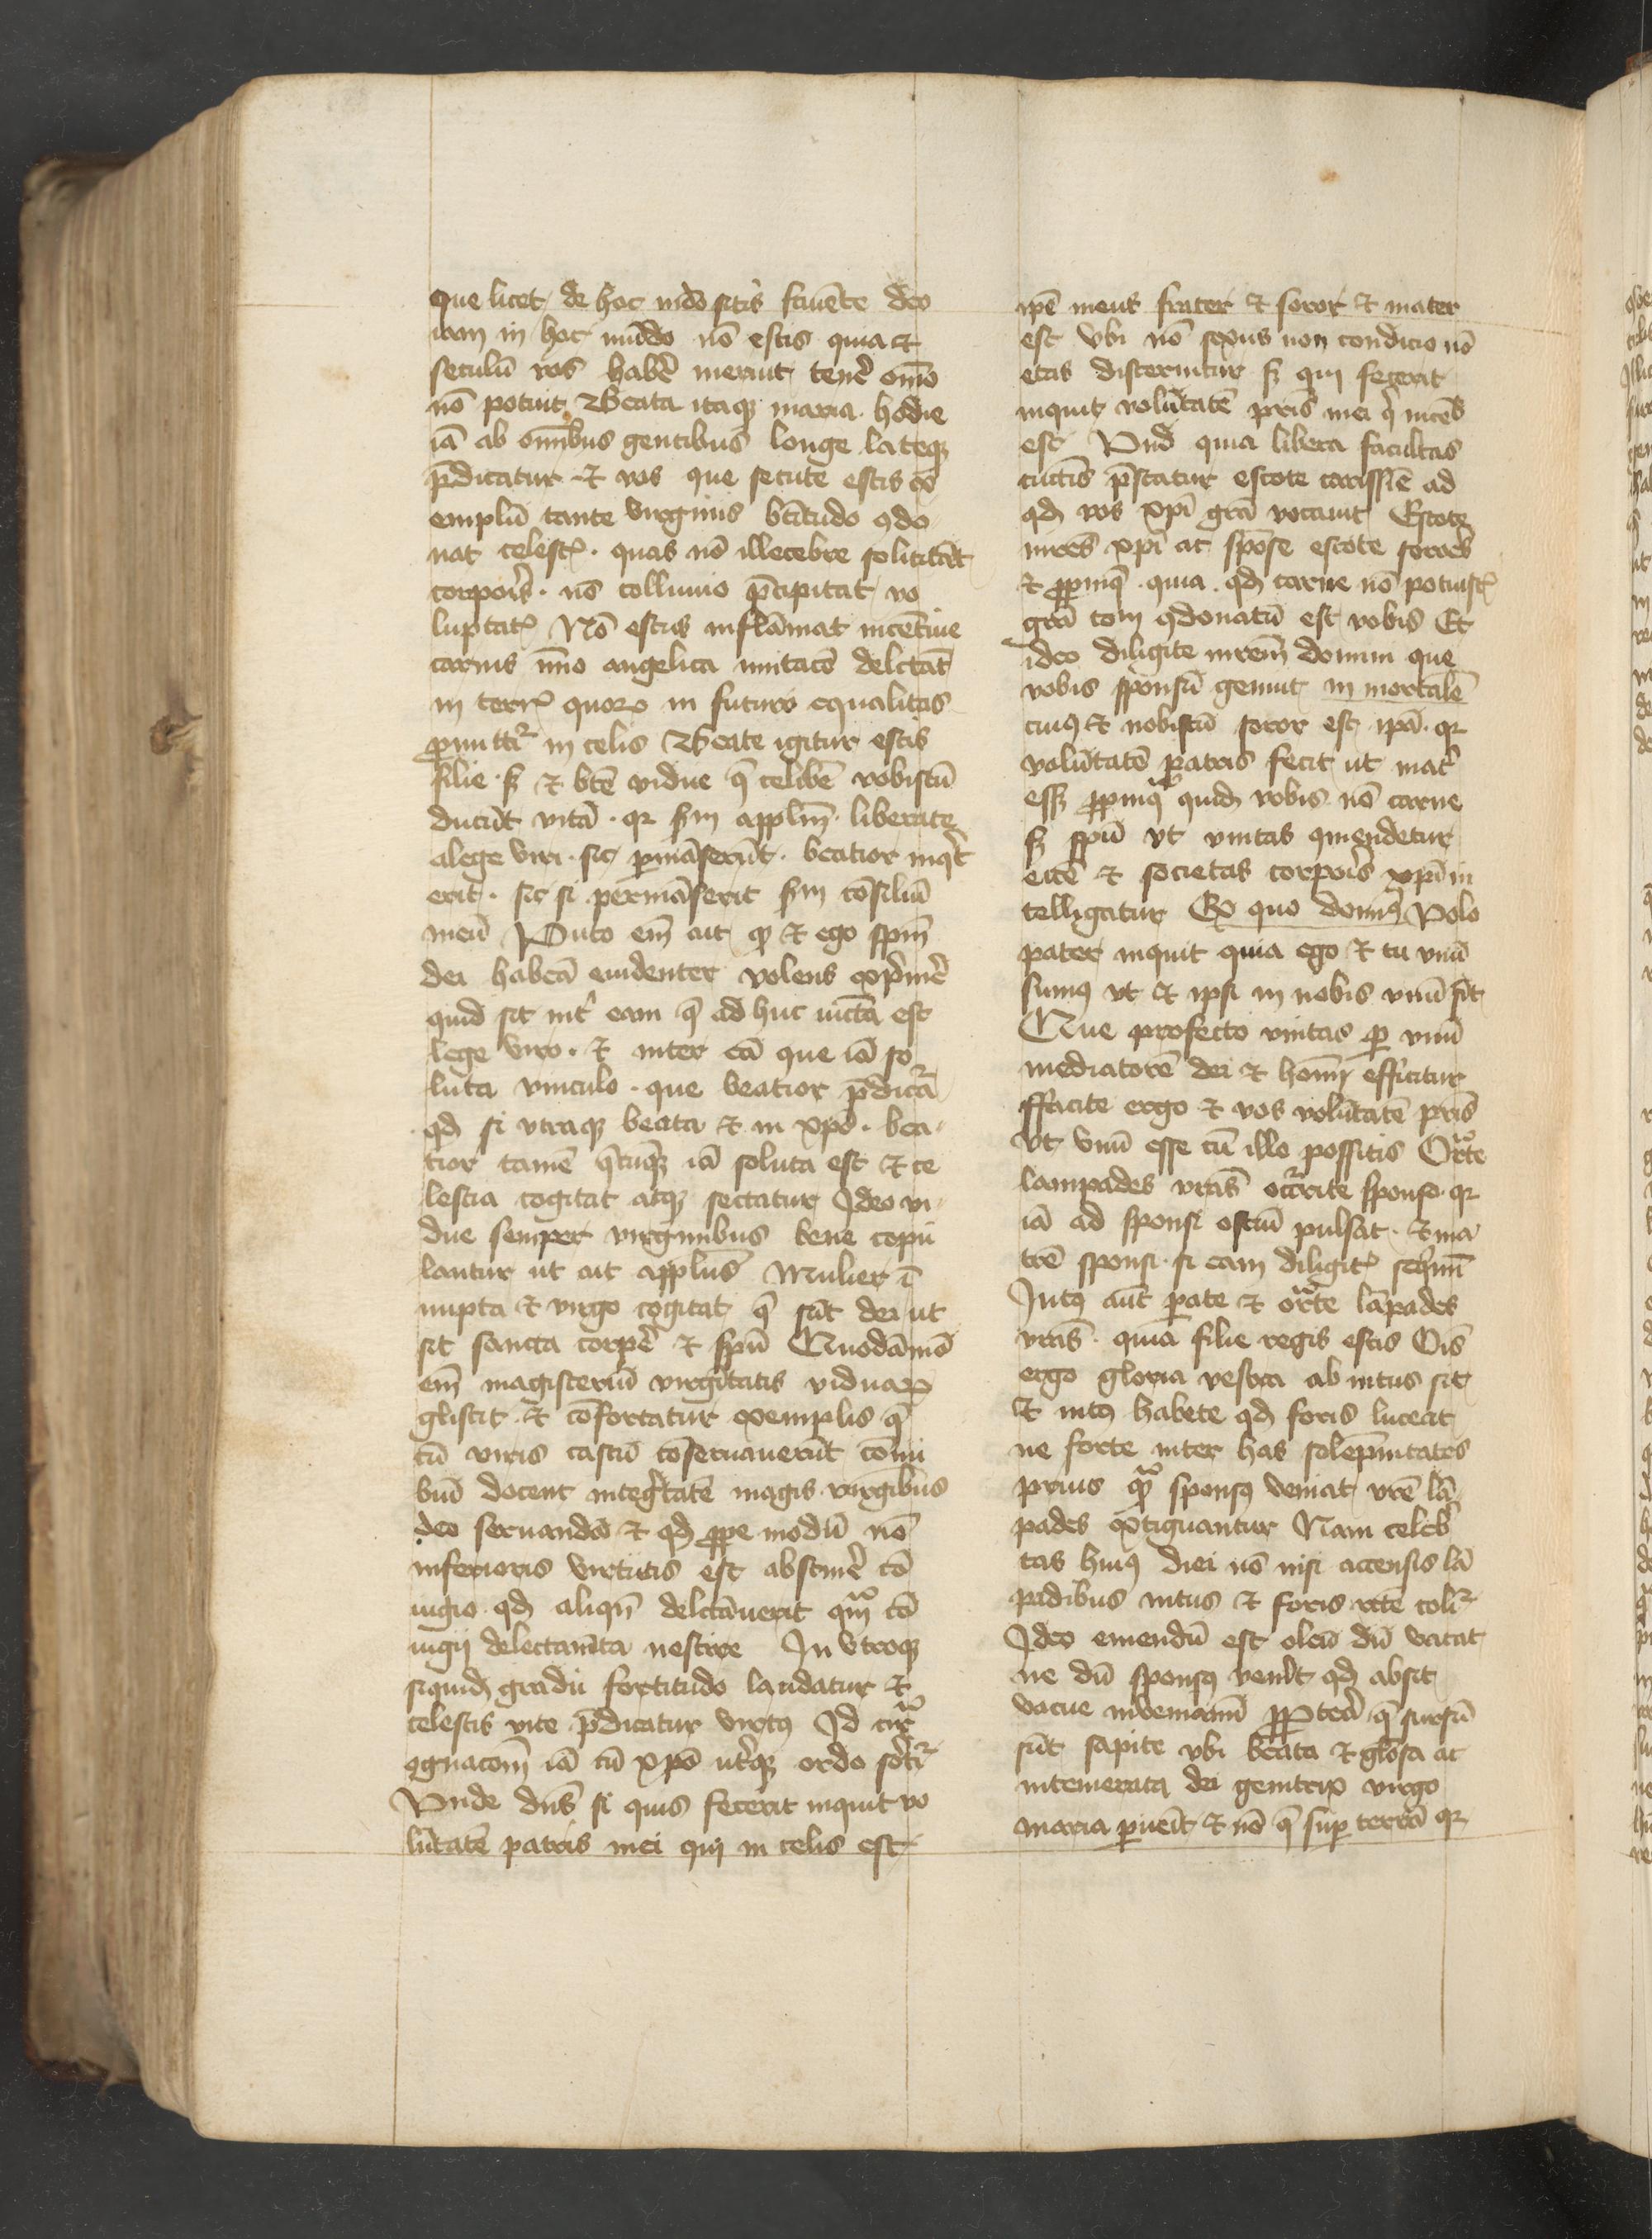 que licet de hoc mdo sitis fauēte deo
iam in hoc mūdo nō estis quia et
seculū vos habē̉ meruit tenē̉ omō
nō potuit Beata itaqꝫ maria hodie
iā ab om̄ibus gentibus longe lateqꝫ
p̄dicatur et vos que secute estis ex
emplū tante virginis bt̄itudo ꝯdo
nat celestꝭ · quas nō illecebre solicitāt
corpor̄ꝭ · nō colluuio p̄cipitat vo
luptatꝭ Nō estus inflāmat incētiue
carnis īmo angelica imitacō delctāt
in terrꝭ quorꝝ in futuro equalitas
ꝓmittit᷑ in celis Beate igitur estis
filie · sꝫ et bt̄e vidue q̄ celibē vobiscū
ducūt vitā · qꝛ sm̄ applm̄ · liberate
a lege viri · sic ꝑmāserūt · beatior inq̇t
erit · sic si permāserit sm̄ cōsiliū
meū Puto em̄ ait ꝙ et ego spm̄
dei habeā euidenter volens exp̄mē̉
quid sit int̉ eam q̄ ad huc iūcta est
lege viro · et inter eā que iā so
luta vinculo · que beatior p̄dicat᷑
qꝺ si vtraqꝫ beata et in xpō · bea
tior tamē q̄cūqꝫ iā soluta est et ce
lestia cogitat atqꝫ sectatur Ideo vi
due semper virginibus bene copu
lantur ut ait applūs Mulier ī
nupta et virgo cogitat q̄ sūt dei ut
sit sancta corpē̉ et spū Quodāmō
em̄ magisteriū virgītatis viduaꝝ
gliscit et cōfortatur exemplis q̄
cū viris castū cōseruauerūt cōnu
biū docent integ̉tatē magis virgībus
deo seruandā et qꝺ ꝓpe modū nō
inferioris virtutis est abstinē̉ cō
iugio qꝺ aliqn̄ delctāuerit qm̄ cō
iugij delectamēta nescire In vtroqꝫ
siquidē gradu fortitudo laudatur et
celestis vite p̄dicatur virtꝰ Id circo
ꝯgnacōm iā cū xpō ut̉qꝫ ordo sortit᷑
Vnde dn̄s si quis fecerit inquit vo
lūtatē patris mei qui in celis est
ipē meus frater et soror et mater
est vbi nō sexus non condicio nō
etas discernitur sꝫ qui fecerit
inquit volūtatē pris̄ mei q̇ in celꝭ
est Vnd̄ quia libera facultas
cūctis p̄statur estote carissīe ad
qꝺ vos xpi grā vocauit Estote
mr̄es xpi ac spōse estote sorores
et ꝓpinq̄ · quia qꝺ carne nō potuistꝭ
grā tom ꝯdonatū est vobis Et
ideo diligite mr̄em domini que
vobis sponsū genuit in mortalē
cuiꝰ et nobiscū soror est ipā · qꝛ
volūtatē patris fecit ut mat̉
essꝫ ꝓpinqua quidē vobis nō carne
sꝫ spū vt vnitas ꝯmendetur
ecc̄e et societas corporis xpi in
telligatur Ex quo domīꝰ Volo
pater inquit quia ego et tu vnū
sumꝰ vt et ipsi in nobis vnū sīt
Que profecto vnitas ꝑ vnū
mediatorē dei et homī efficitur
ffacite ergo et vos volūtatē pris̄
vt vnū esse cū illo possitis Ornate
lampades vr̄as occurrite sponso qꝛ
iā ad sponsi ostiū pulsat · et ma
trē sponsi si eam diligitꝭ sequimī
Intꝰ aūt parate et ornate lāpades
vr̄as · quia filie regis estis Oīs
ergo gloria vestra ab intus sit
et intꝰ habete qꝺ foris luceat
ne forte inter has solēpnitates
prius ꝙ̄ sponsꝰ veniat vr̄e lā
pades extiguantur Nam celeb̉
tas huiꝰ diei nō nisi accensis lā
padibus intus et foris recte colit᷑
Ideo emendū est oleū dū vacat
ne dū sponsꝰ venīt qꝺ absit
vacue inveniamī Propterea q̄ sursū
sūt sapite vbi beata et glōsa ac
intemerata dei genitrix virgo
maria ꝑuēit et nō q̄ suꝑ terrā qꝛ